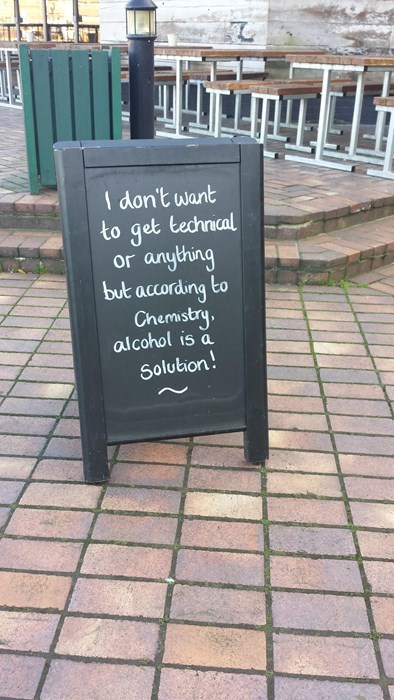 I don't want
to get technical
or anything
but according to
Chemistry,
alcohol is a
solution!